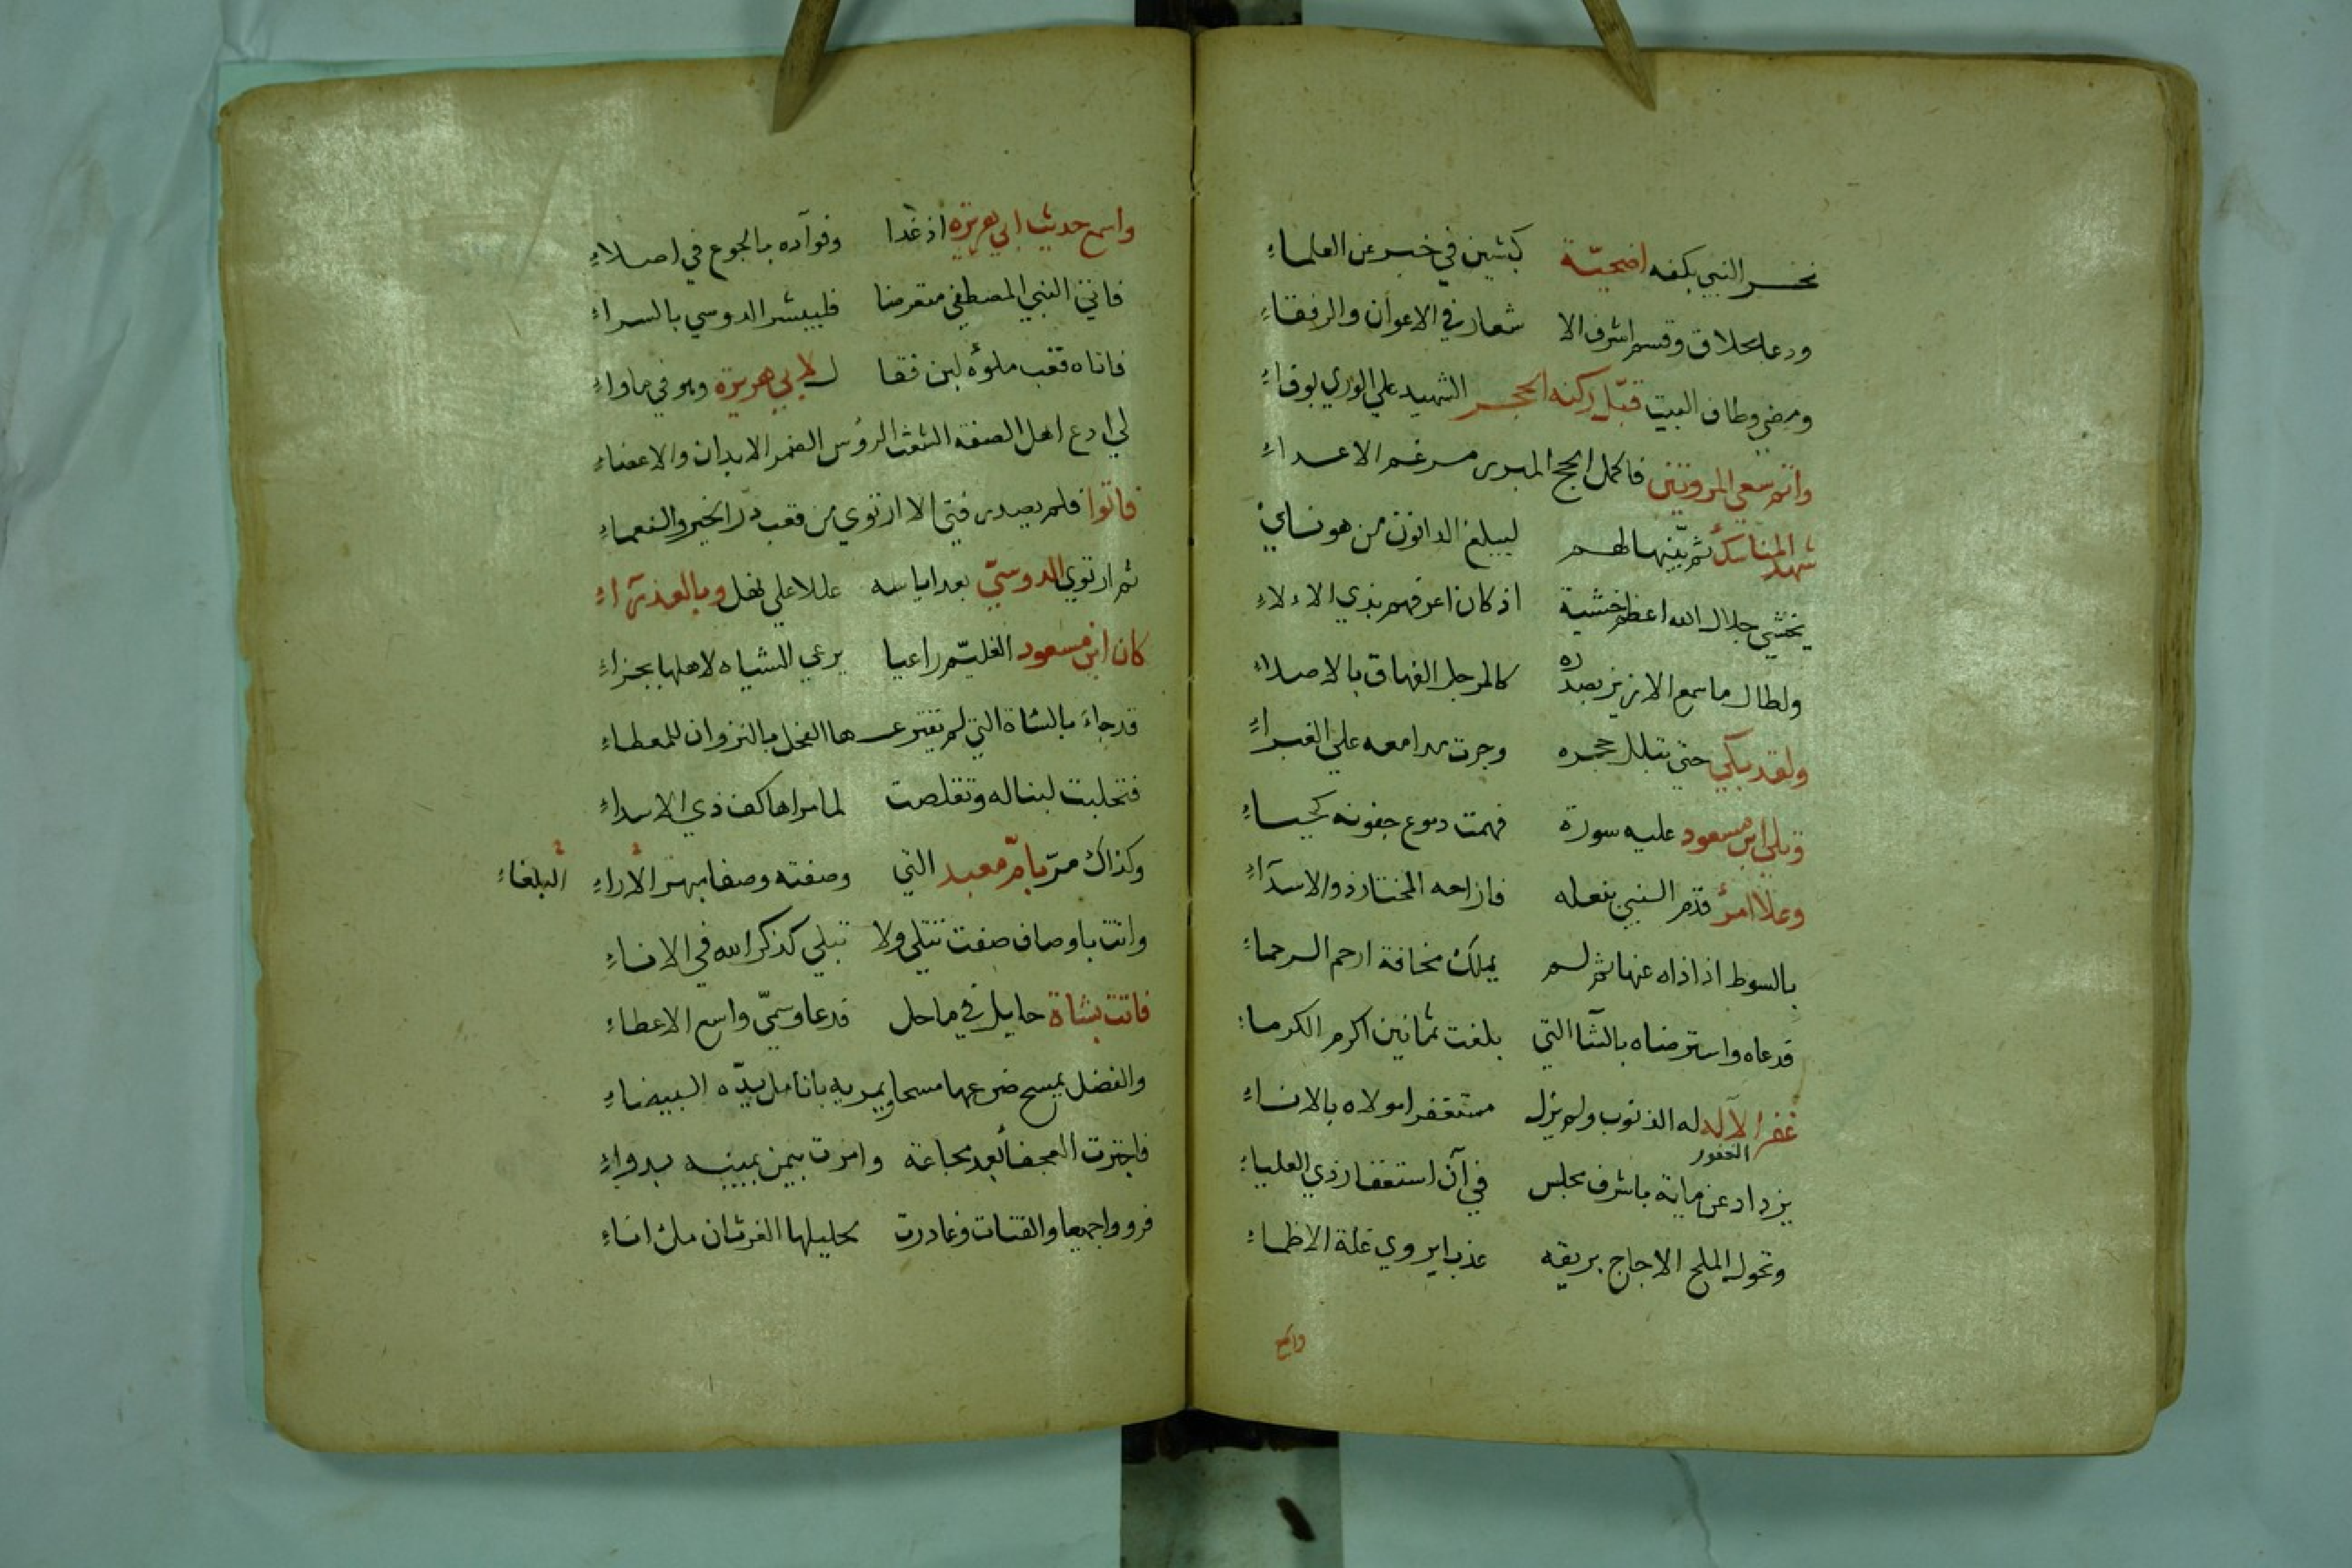 نحر النبي بكفه اضحيّة كبشين في خبر عن العلماءِ
ودعا بحلاق وقسم اشرف الا شعار في الاعوان والرفقاءِ
ومضى وطاف البيت قبّل ركنه الحجر الشهيد على الورى بوفاءِ
واتم سعي المروتين فاكمل الحج المبرى مرغم الاعداءِ
شهد المناسك ثم بيّنها لهم ليبلغ الدانون من هو نائي
يخشي جلال الله اعظم خشية اذ كان اعرفهم بذي الالاءِ
ولطال ما سمع الازيز بصدره كالمرجل الفهاق بالاصلاءِ
ولقد بكي حتى تبلل حجره وجرت مدامعه علي الغبراءِ
وتلي ابن مسعود عليه سورة فهمت دموع جفونه كحياءِ
وعلا امرؤ قدم النبي بنعله فازاحه المختار ذو الاسدآءِ
بالسوط اذ اذاه عنها ثم لم يملك مخافة ارحم الرحماءِ
فدعاه واسترضاه بالشا التي بلغت ثمانين اكرم الكرماءِ
غفر الاله له الذنوب ولم يزل مستغفرا مولاه بالاناءِ
الغفور
يزداد عن ماية باشرف مجلس في آن استغفار ذي العلياءِ
وتحول الملح الاجاج بريقه عذبا يروي غلة الاظماءِ
واسمع
واسمع حديث ابي هريرة اذ غدا وفوآده بالجوع في اصلاءِ
فاتي النبي المصطفي متعرضا فليبشر الدوسي بالسراءِ
فاتاه قعب ملؤه لبن فقا ل لابي هريرة وهو في ماواءِ
لي ادع اهل الصفة الشعث الرؤس الضمر الابدان والاعضاءِ
فاتوا فلم يصدر فتي الا ارتوي من قعب درّ الخير والنعماءِ
ثم ارتوي الدوسيّ بعد اياسه عللا علي نهل وبالعذرآءِ
كان ابن مسعود الغليّم راعيا يرعي الشياه لاهلها بجزاءِ
قد جاء بالشاة التي لم يفترعها الفحل بالنزوان للمعطاءِ
فتحلبت لبنا له وتقلصت لما مراها كف ذي الاسداءِ
وكذاك مرّ بامّ معبد التي وصفته وصفا بهر الأراءِ البلغاءِ
واتت باوصاف صفت تتلي ولا تبلي كذكر الله في الاناءِ
فاتت بشاة حايل في ماحل فدعا وسمّي واسع الاعطاءِ
والفضل يمسح ضرعها مسحا ويمريه بانامل يدّه البيضاءِ
فاجترت العجفا بُعد مجاعة وامرت بيمن يمينه بدواءِ
فرووا جميعا والفتات وغادرت لحليلها الغرثان ملئ اناءِ